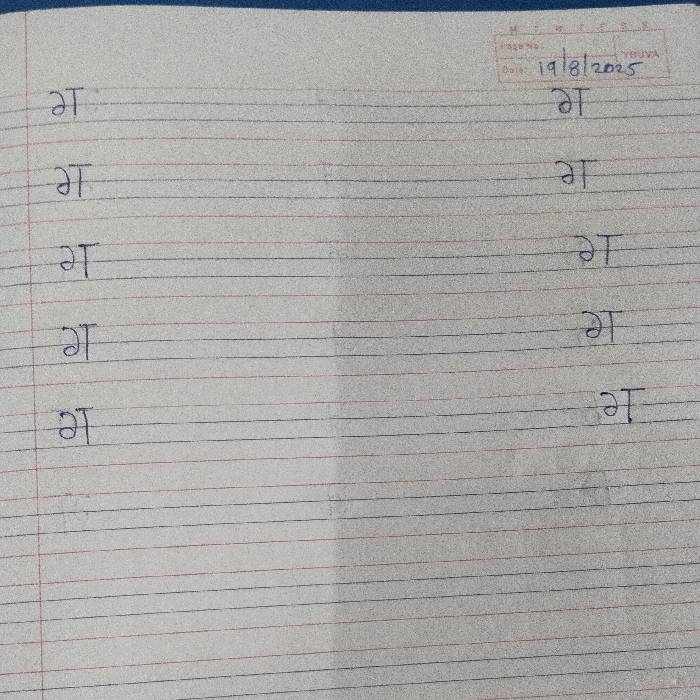 M T W T F S S
Page No.:
YOUVA
Date: 19/8/2025
ग ग
ग ग
ग ग
ग ग
ग ग